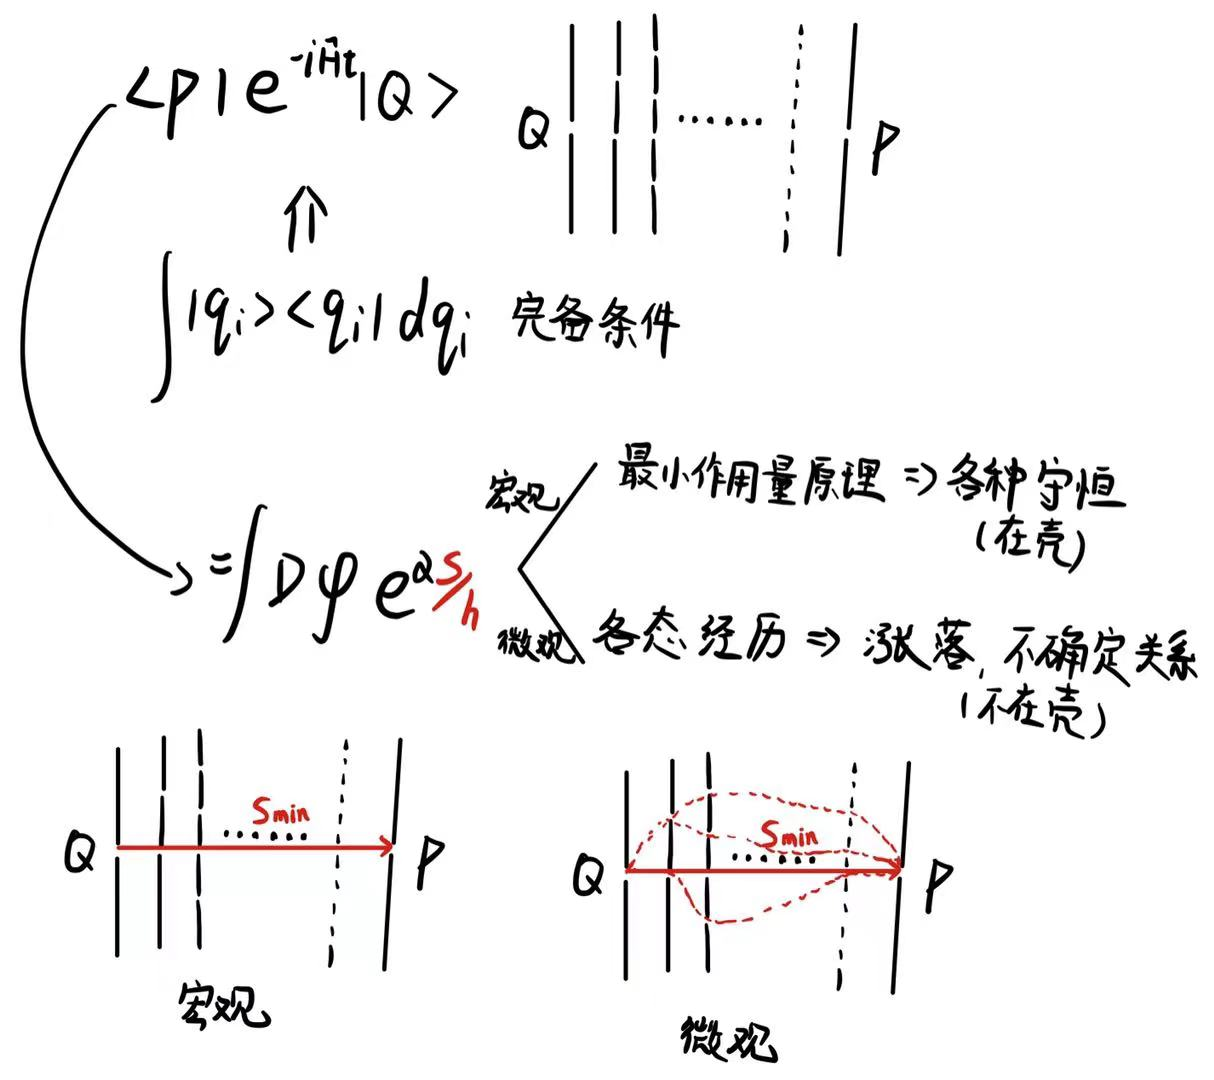 <P|e^{-iĤt}|Q>
Q ...... P
⇑
∫|qᵢ><qᵢ|dqᵢ 完备条件
宏观 最小作用量原理 ⇒ 各种守恒
(在壳)
=∫Dφ e^{αS/h}
微观 各态经历 ⇒ 涨落,不确定关系
(不在壳)
Q Smin ...... P
宏观
Q Smin ...... P
微观